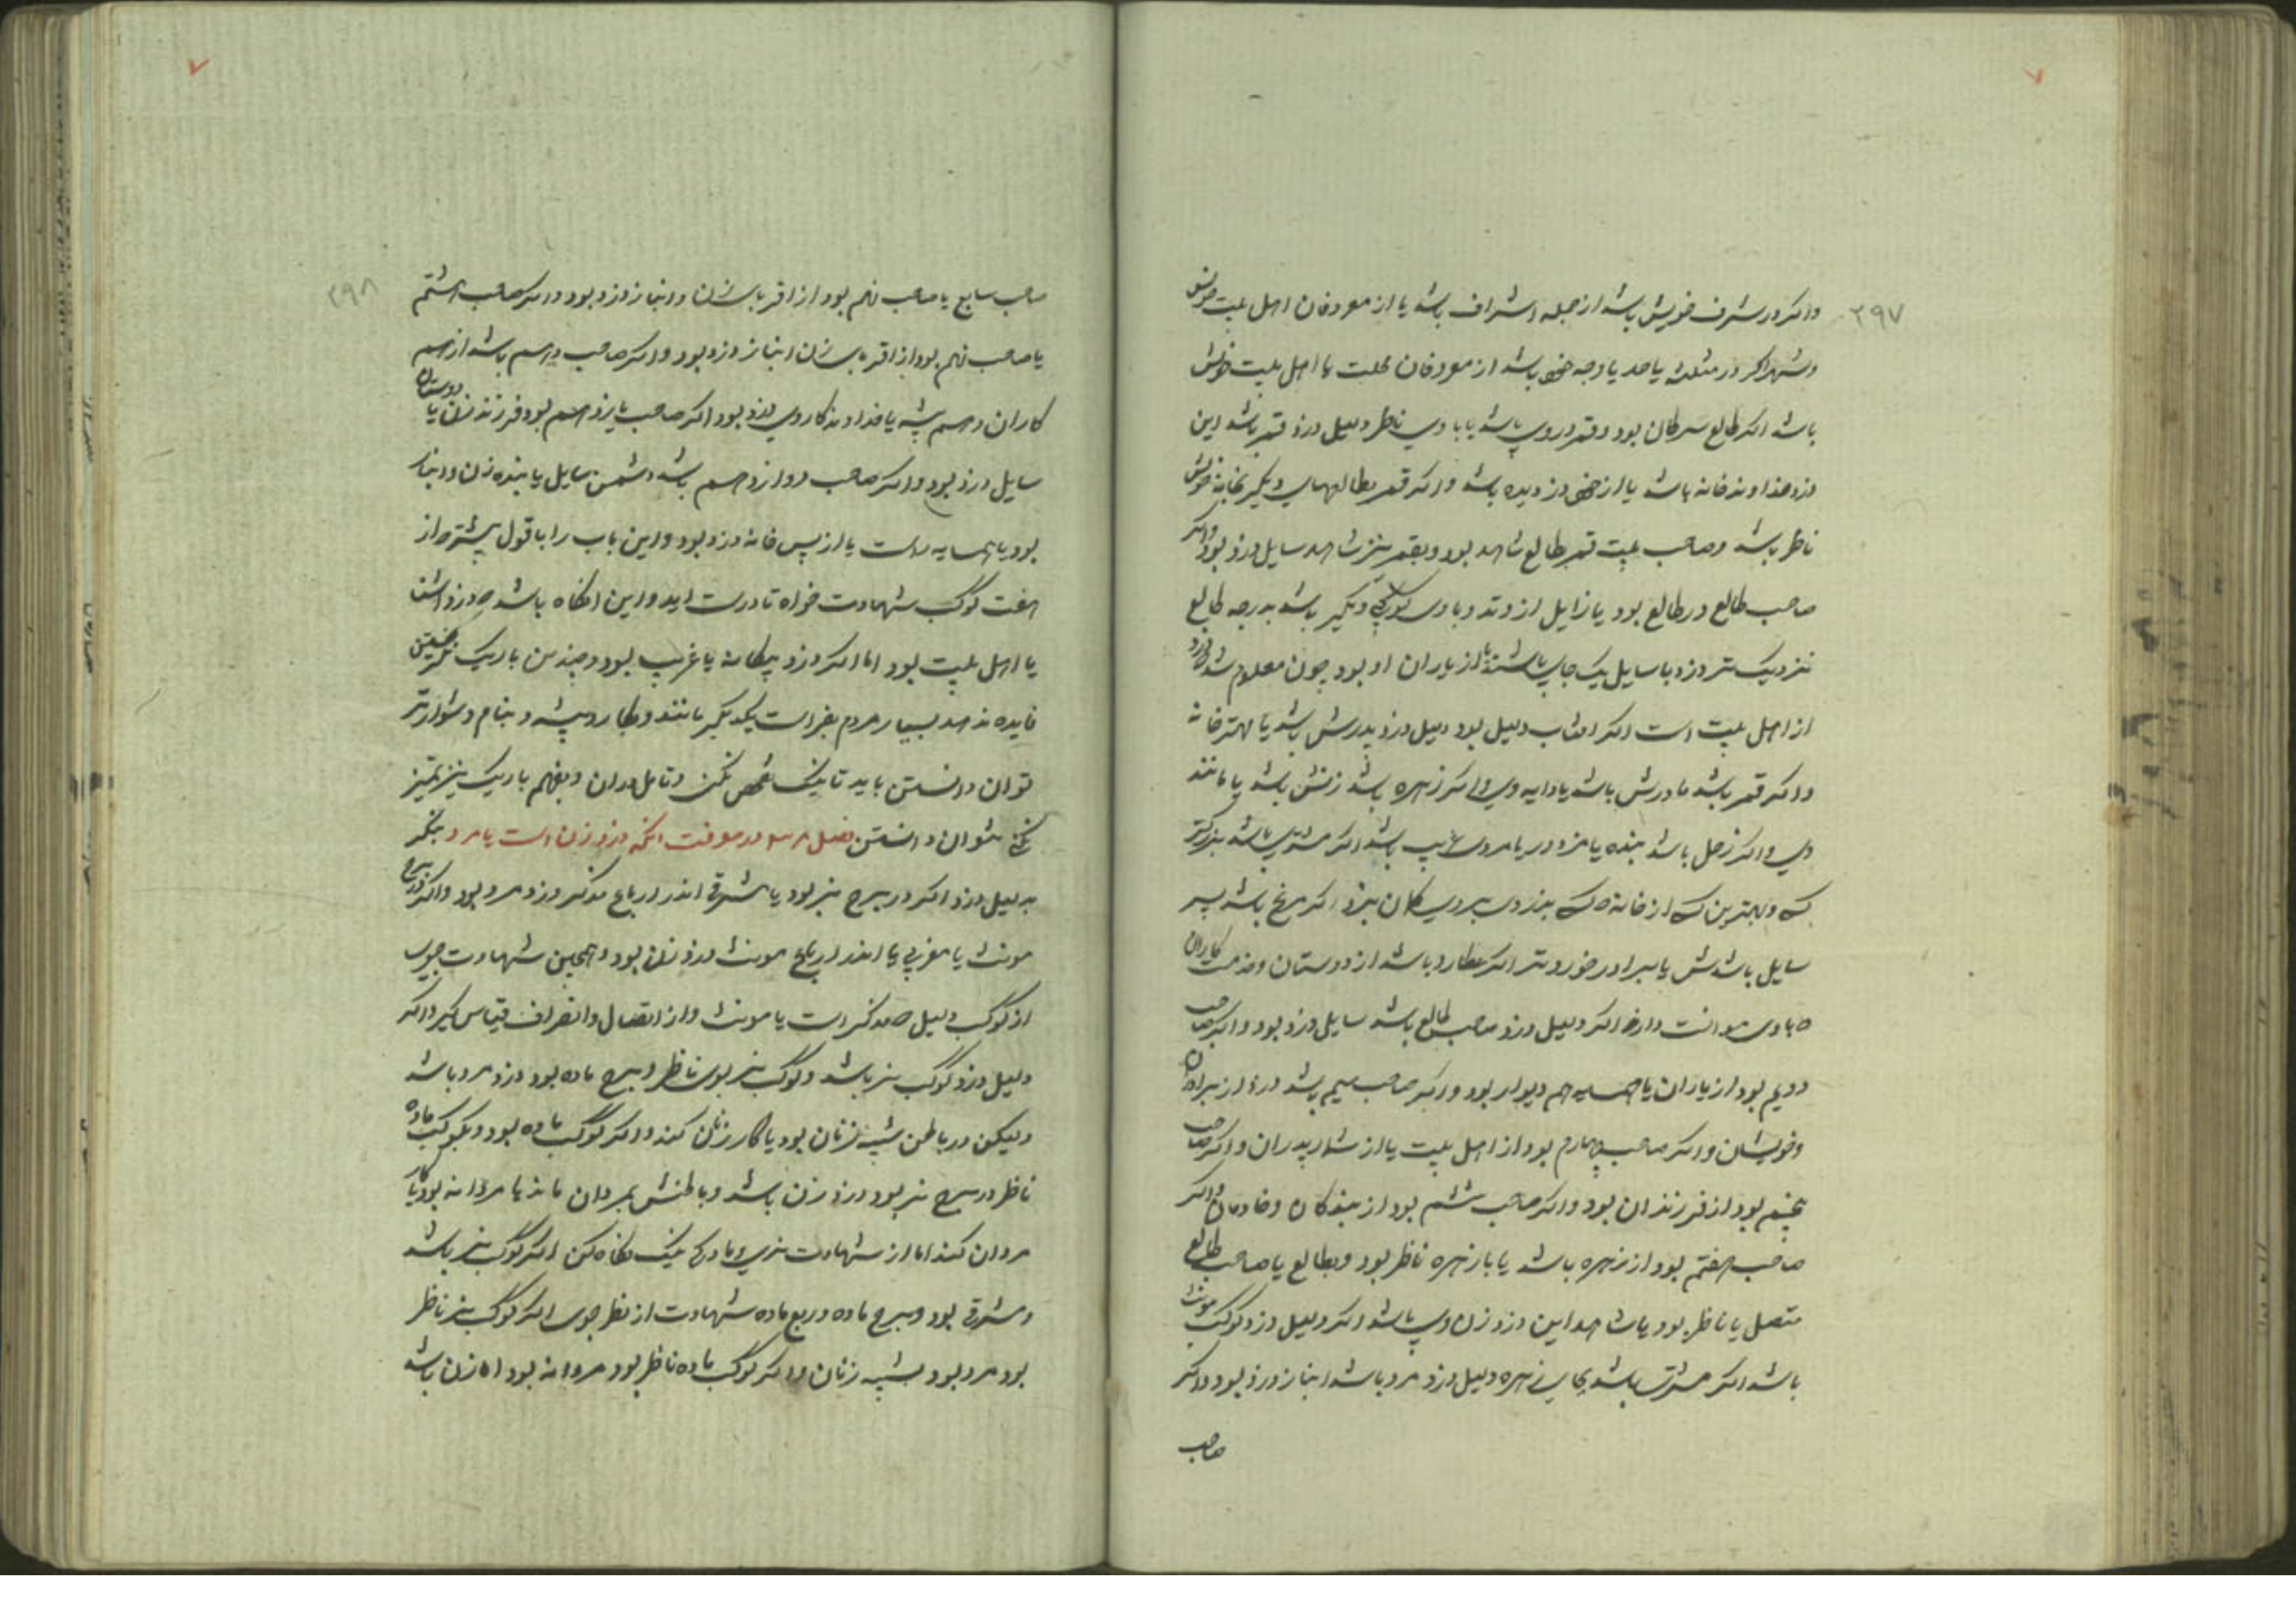 ۲۹۷
واکر در شرف خویش باشد از جمله اشراف باشد یا از معروفان اهل بیت خویش
باشد اکر طالع سرطان بود و قمر در وی باشد یا با وی ناظر دلیل دزد قمر باشد این
دزد خداوند خانه باشد یا از دزدیده باشد واکر قمر بطالعهای دیکر بخانه خویش
ناظر باشد وصاحب بیت قمر بطالع شاهد بود وبقمر نیز شاهد سایل دزد بود واکر
صاحب طالع در طالع بود یا زایل از وتد وبا وی کوکبی دیکر باشد بدرجه طالع
نزدیک تر دزد با سایل یک جای باشند یا از یاران او بود چون معلوم شد دزد
از اهل بیت است اکر افتاب دلیل بود دلیل دزد پدرش باشد یا مهتر خانه
واکر قمر باشد مادرش باشد یا دایه وی واکر زهره باشد زنش باشد یا مانند
وی واکر زحل باشد بنده یا مزدور یا مردی غریب باشد اکر مشتری باشد بزرکتر
کسی وبهترین کسی از خانه که بدزدی بروی کمان نبرد اکر مریخ باشد پسر
سایل باشدش یا برادر خوردتر اکر عطارد باشد از دوستان وخدمت کاران
که با وی موانست دارد اکر دلیل دزد صاحب طالع باشد سایل دزد بود واکر صاحب
دویم بود از یاران یا همسایه هم دیوار بود واکر صاحب سیم باشد دزد از برادران
وخویشان واکر صاحب چهارم بود از اهل بیت یا از شمار پدران واکر صاحب
پنجم بود از فرزندان بود واکر صاحب ششم بود از بندکان وخادمان واکر
صاحب هفتم بود از زهره باشد یا با زهره ناظر بود وبطالع یا صاحب طالع
متصل یا ناظر بود یا شاهد این دزد زن وی باشد واکر دلیل دزد کوکب مونث
باشد اکر مشتری باشد بجای زهره دلیل دزد مرد باشد انباز دزد بود واکر
صاحب
۲۹۸
صاحب سابع یا صاحب نهم بود از اقربای زن وانباز دزد بود واکر صاحب هشتم
یا صاحب نهم بود از اقربای زن انباز دزد بود واکر صاحب دهم باشد از هم
کاران وهم پیشه یا خداوند کار وی دزد بود اکر صاحب یازدهم بود فرزند زن یا دوستان
سایل دزد بود واکر صاحب دوازدهم باشد دشمن سایل یا بنده زن وانباز
بود یا همسایه راست یا از پس خانه دزد بود واین باب را باقول پیشتر از
هفت کوکب شهادت خواه تا درست اید واین انکاه باشد که دزد اشنا
یا اهل بیت بود اما اکر دزد بیکانه یا غریب بود وچندین باریک
فایده ندهد بسیار مردم بغراست یکدیکر مانند وبکار وپیشه وبنام دشوارتر
توان دانستن باید تا نیک تفحص بکنی وتامل دران وبفهم باریک نیز تمیز
کنی بتوان دانستن فصل در معرفت انکه دزد زن است یا مرد بنکر
بدلیل دزد اکر در برج نر بود یا مشرقی اندر ارباع مذکر دزد مرد بود واکر در برج
مونث یا مغربی یا اندر ارباع مونث دزد زن بود وهمچنین شهادت جوی
از کوکب دلیل که مذکر است یا مونث واز اتصال وانصراف قیاس کیر واکر
دلیل دزد کوکب نر باشد وکوکب نر بوی ناظر وبرج ماده بود دزد مرد باشد
ولیکن در باطن شبیه زنان بود یا کار زنان کند واکر کوکب ماده بود وبکوکب ماده
ناظر در برج نر بود دزد زن باشد وباطنش بمردان ماند یا مردانه بود یا کار
مردان کند اما از شهادت نری ومادکی نیک نکاه کن اکر کوکب نر باشد
ومشرقی بود وبرج ماده وربع ماده شهادت از نظر جوی اکر کوکب نر ناظر
بود مرد بود بشبیه زنان واکر کوکب ماده ناظر بود مردانه بود اما زن باشد